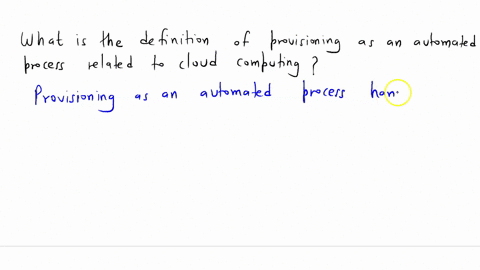 What is the definition of provisioning as an automated
process related to cloud computing?
Provisioning as an automated process han